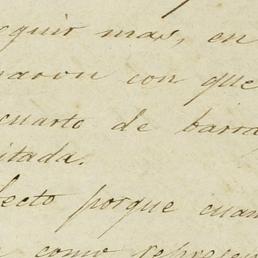 eguir mas, en
naron con que
cuarto de barra
itada.
fecto porque cuan
como represen